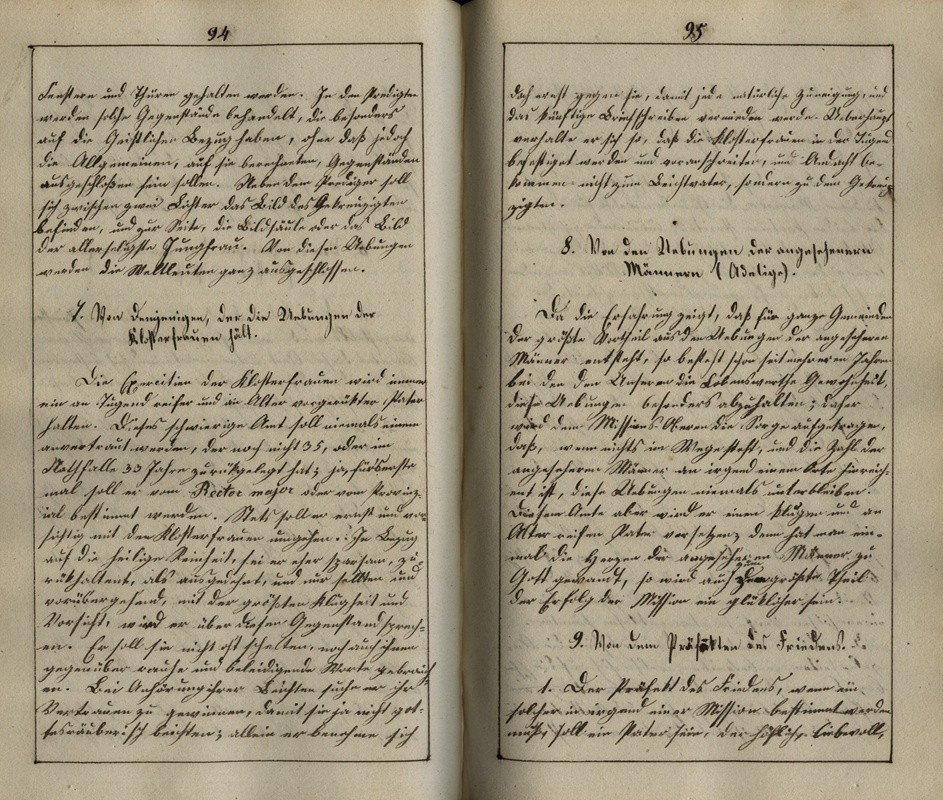 94
Fenstern und Thüren gehalten werden. In den Predigten
werden solche Gegenstände behandelt, die besonders
auf die Geistlichen Bezug haben, ohne daß jedoch
die Allgemeinen, auf sie berechneten, Gegenstände
ausgeschloßen sein sollen. Neben dem Prediger soll
sich zwischen zwei Lichter das Bild des Gekreuzigten
befinden, und zur Seite, die Bildsäule oder das Bild
der allerseligste Jungfrau. Von diesen Uebungen
werden die Weltleute ganz ausgeschlossen.
7. Von Demjenigen, der die Uebungen der
Klosterfrauen hält.
Die Exercitien der Klosterfrauen wird immer
ein an Tugend reifer und an Alter vorgerükter Pater
halten. Dieses schwierige Amt soll niemals einem
anvertraut werden, der noch nicht 35, oder im
Nothfalle 33 Jahre zurükgelegt hat; ja, fürs erste
mal soll er vom Rector major oder vom Provinz-
ial bestimmt werden. Stets soll er ernst und vor-
sichtig mit den Klosterfrauen umgehen. In Bezug
auf die heilige Reinheit, sei er eher sparsam, zu-
rükhaltent, als ausgedehnt, und nur selten und
vorübergehend, mit der größten Klugheit und
Vorsicht, wird er über diesen Gegenstand sprech-
en. Er soll sie nicht oft schelten, noch auch ihnen
gegenüber rauhe und beleidigende Worte gebrauch-
en. Bei Anhörung ihrer Beichten suche er ihr
Vertrauen zu gewinnen, damit sie ja nicht got-
tesräuberisch beichten; allein er benehme sich
95
doch ernst gegen sie, damit jede natürliche Zuneigung, und
das künftige Briefschreiben vermieden werde. Ueberhaupt
verhalte er sich so, daß die Klosterfrauen in der Tugend
befestiget werden und voranschreiten, und Andacht be-
kommen nicht zum Beichtvater, sondern zu dem Gekreu-
zigten.
8. Von den Uebungen der angesehenern
Männern (Adelige).
Da die Erfahrung zeigt, daß für ganze Gemeinden
der größte Vortheil aus den Uebungen der angesehenen
Männer entsteht, so besteht schon seit mehreren Jahren
bei den den Unseren die lobenswerthe Gewohnheit,
diese Uebungen besonders abzuhalten; daher
wird dem Missions Obern die Sorge aufgetragen,
daß, wenn nichts im Wege steht, und die Zahl der
angesehenern Männer an irgend einem Orte hinreich-
ent ist, diese Uebungen niemals unterbleiben.
Diesem Amte aber wird er einen klugen und an
Alter reifen Pater vorsetzen; denn hat man ein-
mal die Herzen der angesehenen Männer zu
Gott gewandt, so wird auch zum größte Theil
der Erfolg der Mission ein glüklicher sein.
9. Von dem Präfekten des Friedens.
1. Der Präfekt des Friedens, wenn ein
solcher in irgend einer Mission bestimmt werden
muß, soll ein Pater sein, der höflich, liebevoll,